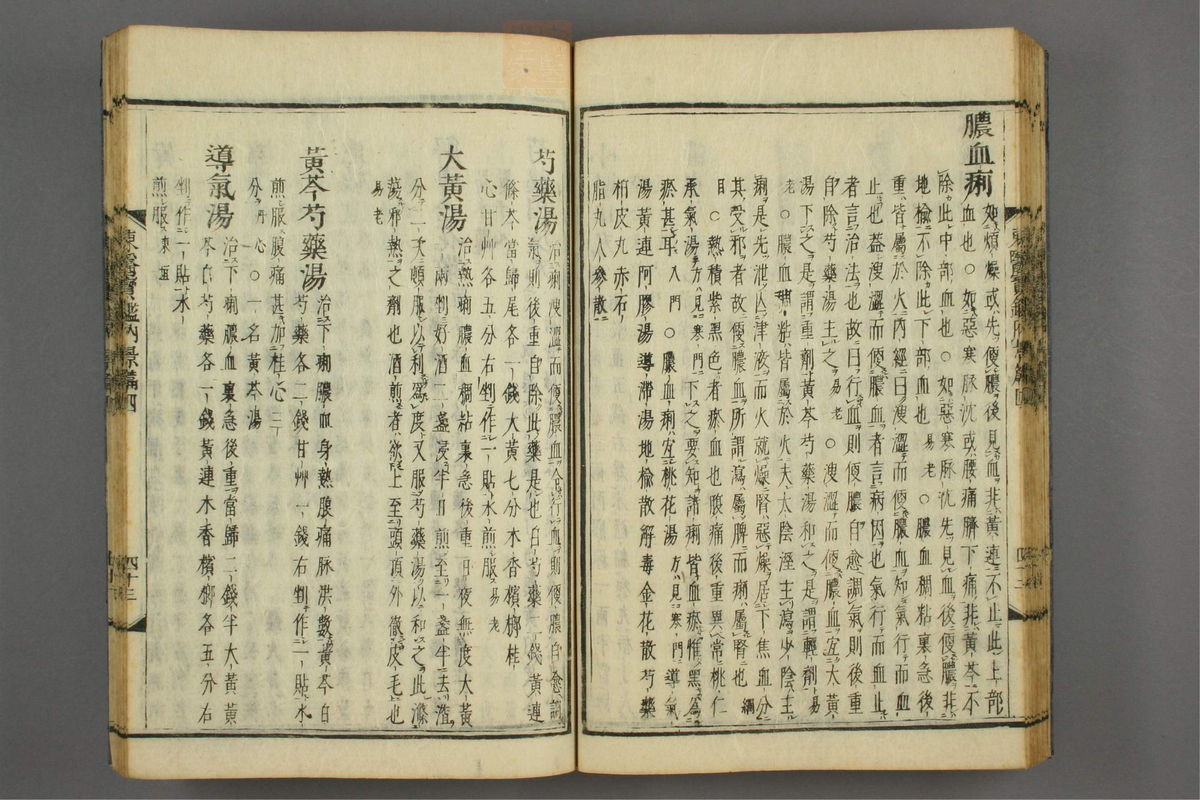 膿血痢 如煩燥或先便膿後見血非黃連不止此上部
血也○如惡寒脉沈或腰痛臍下痛非黃芩不
除此中部血也○如惡寒脉沈先見血後便膿非
地楡不除此下部血也 易老 ○膿血稠粘裏急後
重皆屬於火內經曰溲澁而便膿血知氣行而血
止也盖溲澁而便膿血者言病因也氣行而血止
者言治法也故曰行血則便膿自愈調氣則後重
自除芍藥湯主之 易老 ○溲澁而便膿血宜大黃
湯下之是謂重劑黃芩芍藥湯和之是謂輕劑 易
老 ○膿血稠粘皆屬於火夫太陰溼主瀉少陰主
痢是先泄亡津液而火就燥腎惡燥居下焦血分
其受邪者故便膿血所謂瀉屬脾而痢屬腎也 綱
目 ○熱積紫黑色者瘀血也腹痛後重異常桃仁
承氣湯 方見寒門 下之要知諸痢皆血瘀惟黑爲
瘀甚耳 入門 ○膿血痢宜桃花湯 方見寒門 導氣
湯黃連阿膠湯導滯湯地楡散解毒金花散芍藥
柏皮丸赤石
脂丸人參散
芍藥湯 治痢溲澁而便膿血令行血則便膿自愈調
氣則後重自除此藥是也白芍藥二錢黃連
條芩當歸尾各一錢大黃七分木香檳榔桂
心甘艸各五分右剉作一貼水煎服 易老
大黃湯 治熱痢膿血稠粘裏急後重日夜無度大黃
一兩剉好酒二盞浸半日煎至一盞半去滓
分二次頓服以利爲度又服芍藥湯以和之此滌
蕩邪熱之劑也酒煎者欲上至頭頂外徹皮毛也
易老
黃芩芍藥湯 治下痢膿血身熱腹痛脉洪數黃芩白
芍藥各二錢甘艸一錢右剉作一貼水
煎服腹痛甚加桂心三
分 丹心 ○一名黃芩湯
導氣湯 治下痢膿血裏急後重當歸二錢半大黃黃
芩白芍藥各一錢黃連木香檳榔各五分右
剉作一貼水
煎服 東垣
東醫寶鑑內景篇四
四十三